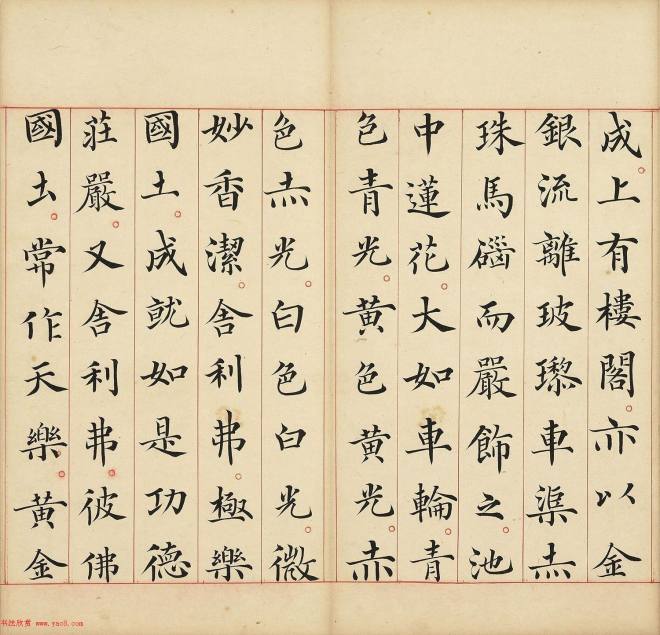 成上有樓閣亦以金
銀流離玻瓈車渠赤
珠馬碯而嚴飾之池
中蓮花大如車輪青
色青光黃色黃光赤
色赤光白色白光微
妙香潔舍利弗極樂
國土成就如是功德
莊嚴又舍利弗彼佛
國土常作天樂黃金
书法欣赏 www.yac8.com